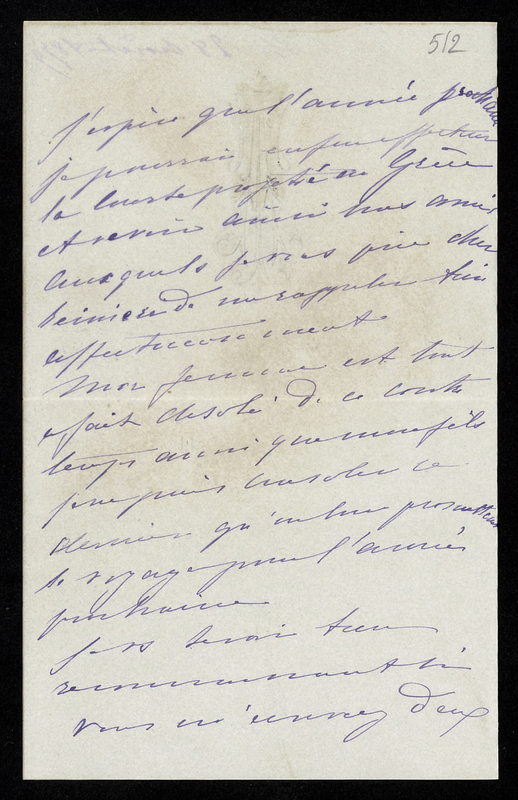 512
j'espère que l'année prochaine
je pourrai enfin effectuer
la course projetée en Grèce
et revoir ainsi nos amis
auxquels je vous prie cher
de me rappeler bien
affectueusement
Mon femme est tout
a fait désolé de ce contre
temps ainsi que mon fils
je ne puis consoler ce
dernier qu'en lui promettant
le voyage pour l'année
prochaine
je vs serai bien
reconnaissant si
vous m'envoyez deux